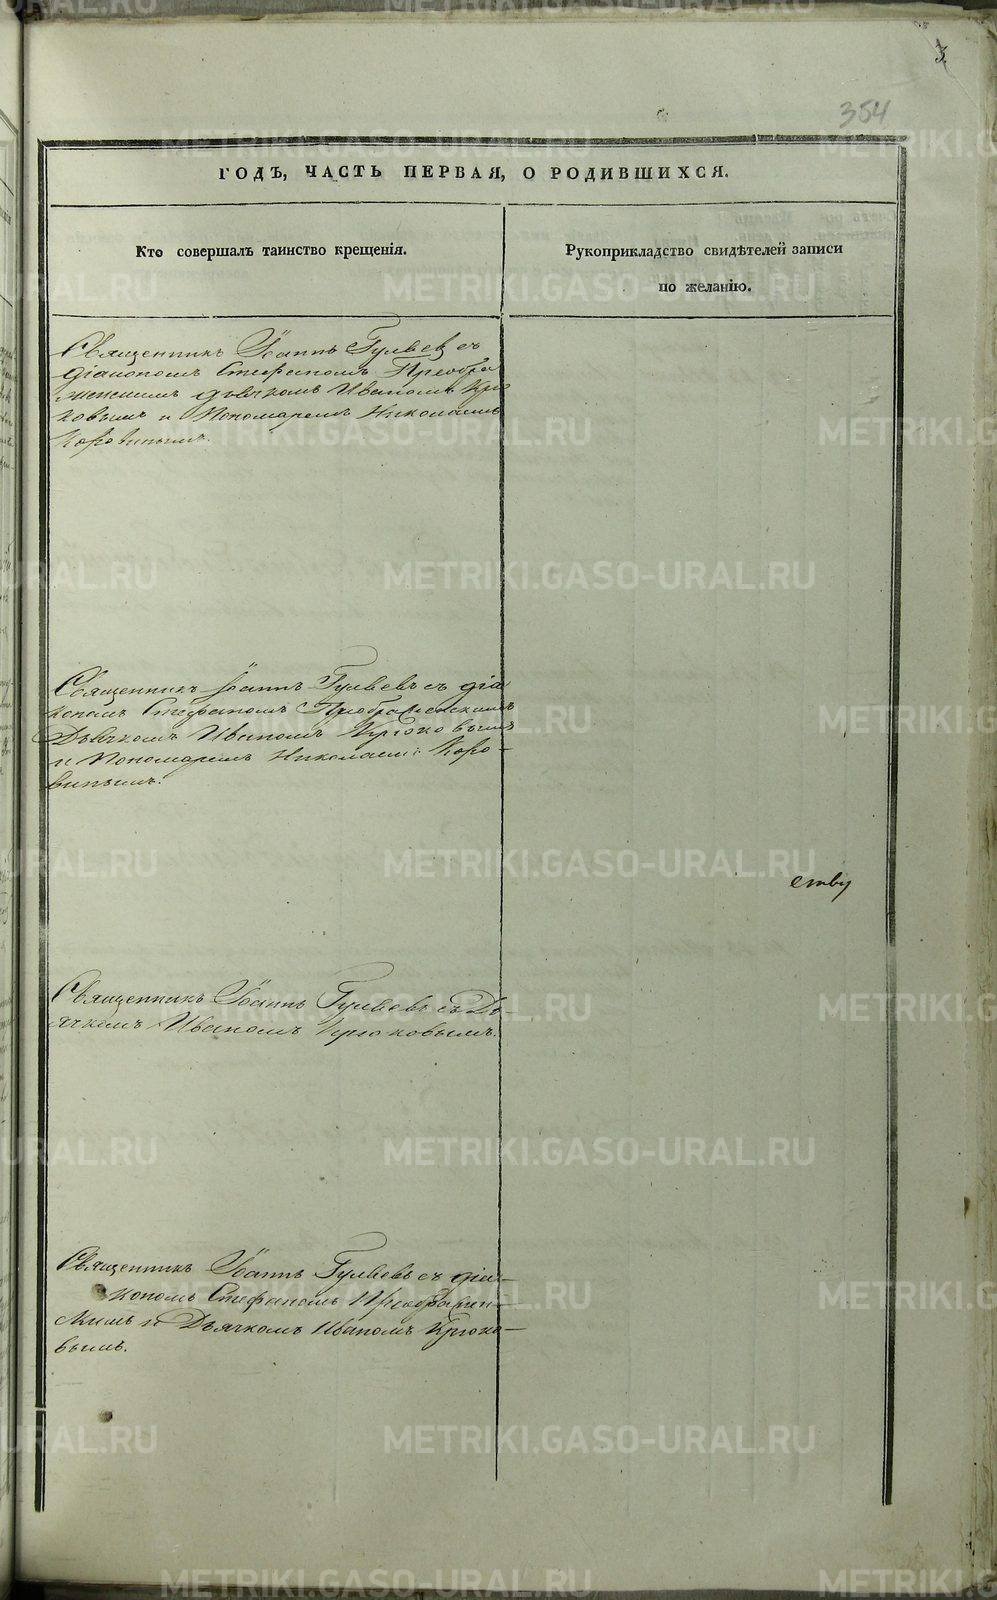 3.
354
ГОДЪ, ЧАСТЬ ПЕРВАЯ, О РОДИВШИХСЯ.
Кто совершалъ таинство крещенія.
Рукоприкладство свидѣтелей записи
по желанію.
Священникъ Іоаннъ Гуляевъ съ
діакономъ Стефаномъ Преобра
женскимъ дьячкомъ Иваномъ Крю
ковымъ и Пономаремъ Николаемъ
Коровинымъ.
Священникъ Іоаннъ Гуляевъ съ діа
кономъ Стефаномъ Преображенскимъ
Дьячкомъ Иваномъ Крюковымъ
и Пономаремъ Николаемъ Коро-
винымъ.
ству
Священникъ Іоаннъ Гуляевъ съ Дь-
ячкомъ Иваномъ Крюковымъ.
Священникъ Іоаннъ Гуляевъ съ діа-
кономъ Стефаномъ Преображен-
скимъ и Дьячкомъ Иваномъ Крюко-
вымъ.
METRIKI.GASO-URAL.RU